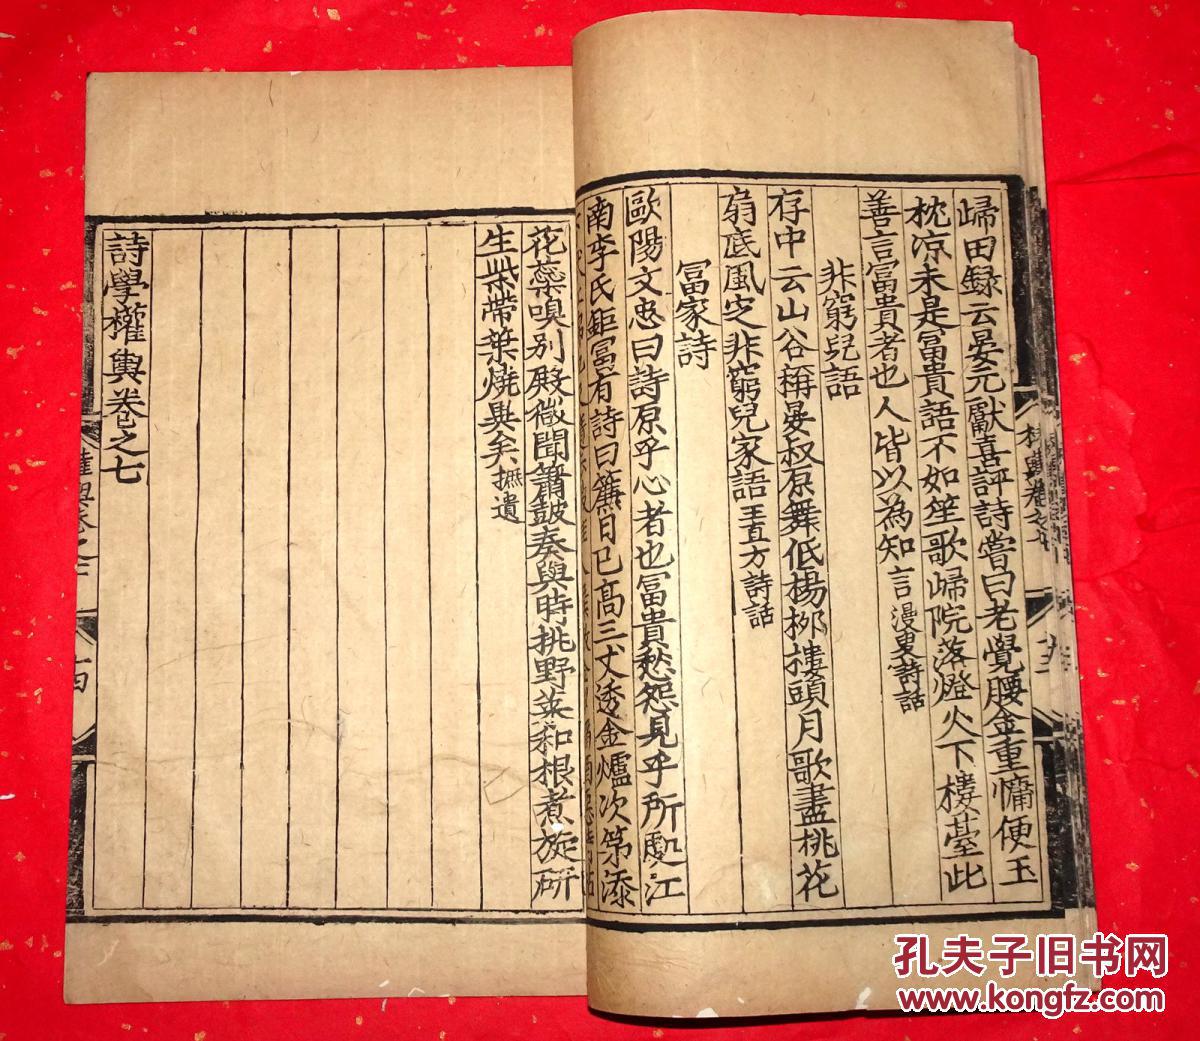 歸田録云晏元獻喜評詩嘗曰老覺腰金重慵便玉
枕凉未是冨貴語不如笙歌歸院落燈火下樓臺此
善言冨貴者也人皆以為知言漫叟詩話
非窮兒語
存中云山谷稱晏叔原舞低楊柳樓頭月歌盡桃花
扇底風定非窮兒家語王直方詩話
冨家詩
歐陽文忠曰詩原乎心者也冨貴愁怨見乎所處江
南李氏鉅冨有詩曰簾日已高三丈透金爐次第添
花蘂嗅别殿微聞簫皷奏與時挑野菜和根煮旋斫
生柴帶葉燒異矣摭遺
詩學權輿卷之七
孔夫子旧书网
www.kongfz.com